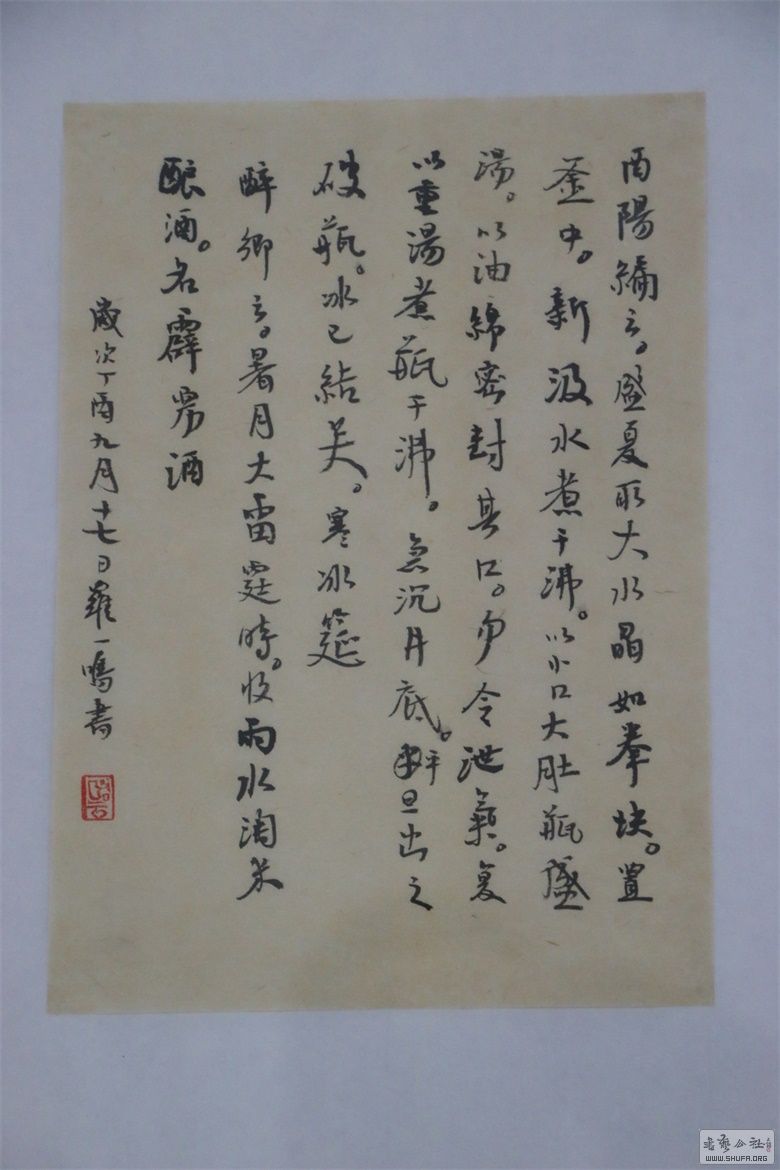 酉陽編云。盛夏取大水晶如拳块。置
釜中。新汲水煮千沸。以小口大肚瓶盛
湯。以油綿密封其口。勿令泄氣。复
以重湯煮瓶千沸。急沉井底。平旦出之
破瓶。冰已結矣。寒冰筵
醉卿云。暑月大雷霆時。收雨水淘米
酿酒。名霹雳酒
歲次丁酉九月十七日羅一鳴書
書藝公社
WWW.SHUFA.ORG